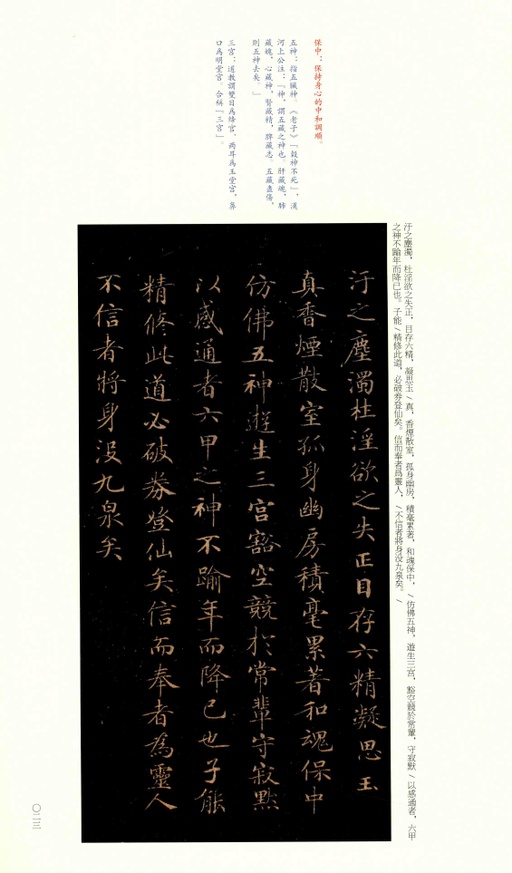 保中：保持身心的中和調順。
五神：指五臟神。《老子》「穀神不死」，漢
河上公注：「神，謂五藏之神也。肝藏魂，肺
藏魄，心藏神，腎藏精，脾藏志。五藏盡傷，
則五神去矣。」
三宮：道教謂雙目爲絳宮，兩耳爲玉堂宮，鼻
口爲明堂宮，合稱「三宮」。
汙之塵濁，杜淫欲之失正，目存六精，凝思玉\真，香煙散室，孤身幽房，積毫累著，和魂保中，\仿佛五神，遊生三宮，豁空競於常輩，守寂默\以感通者，六甲
之神不踰年而降已也。子能\精修此道，必破券登仙矣。信而奉者爲靈人，\不信者將身没九泉矣。\
汙之塵濁杜淫欲之失正目存六精凝思玉
真香煙散室孤身幽房積毫累著和魂保中
仿佛五神遊生三宮豁空競於常輩守寂默
以感通者六甲之神不踰年而降已也子能
精修此道必破券登仙矣信而奉者為靈人
不信者將身没九泉矣
〇二三